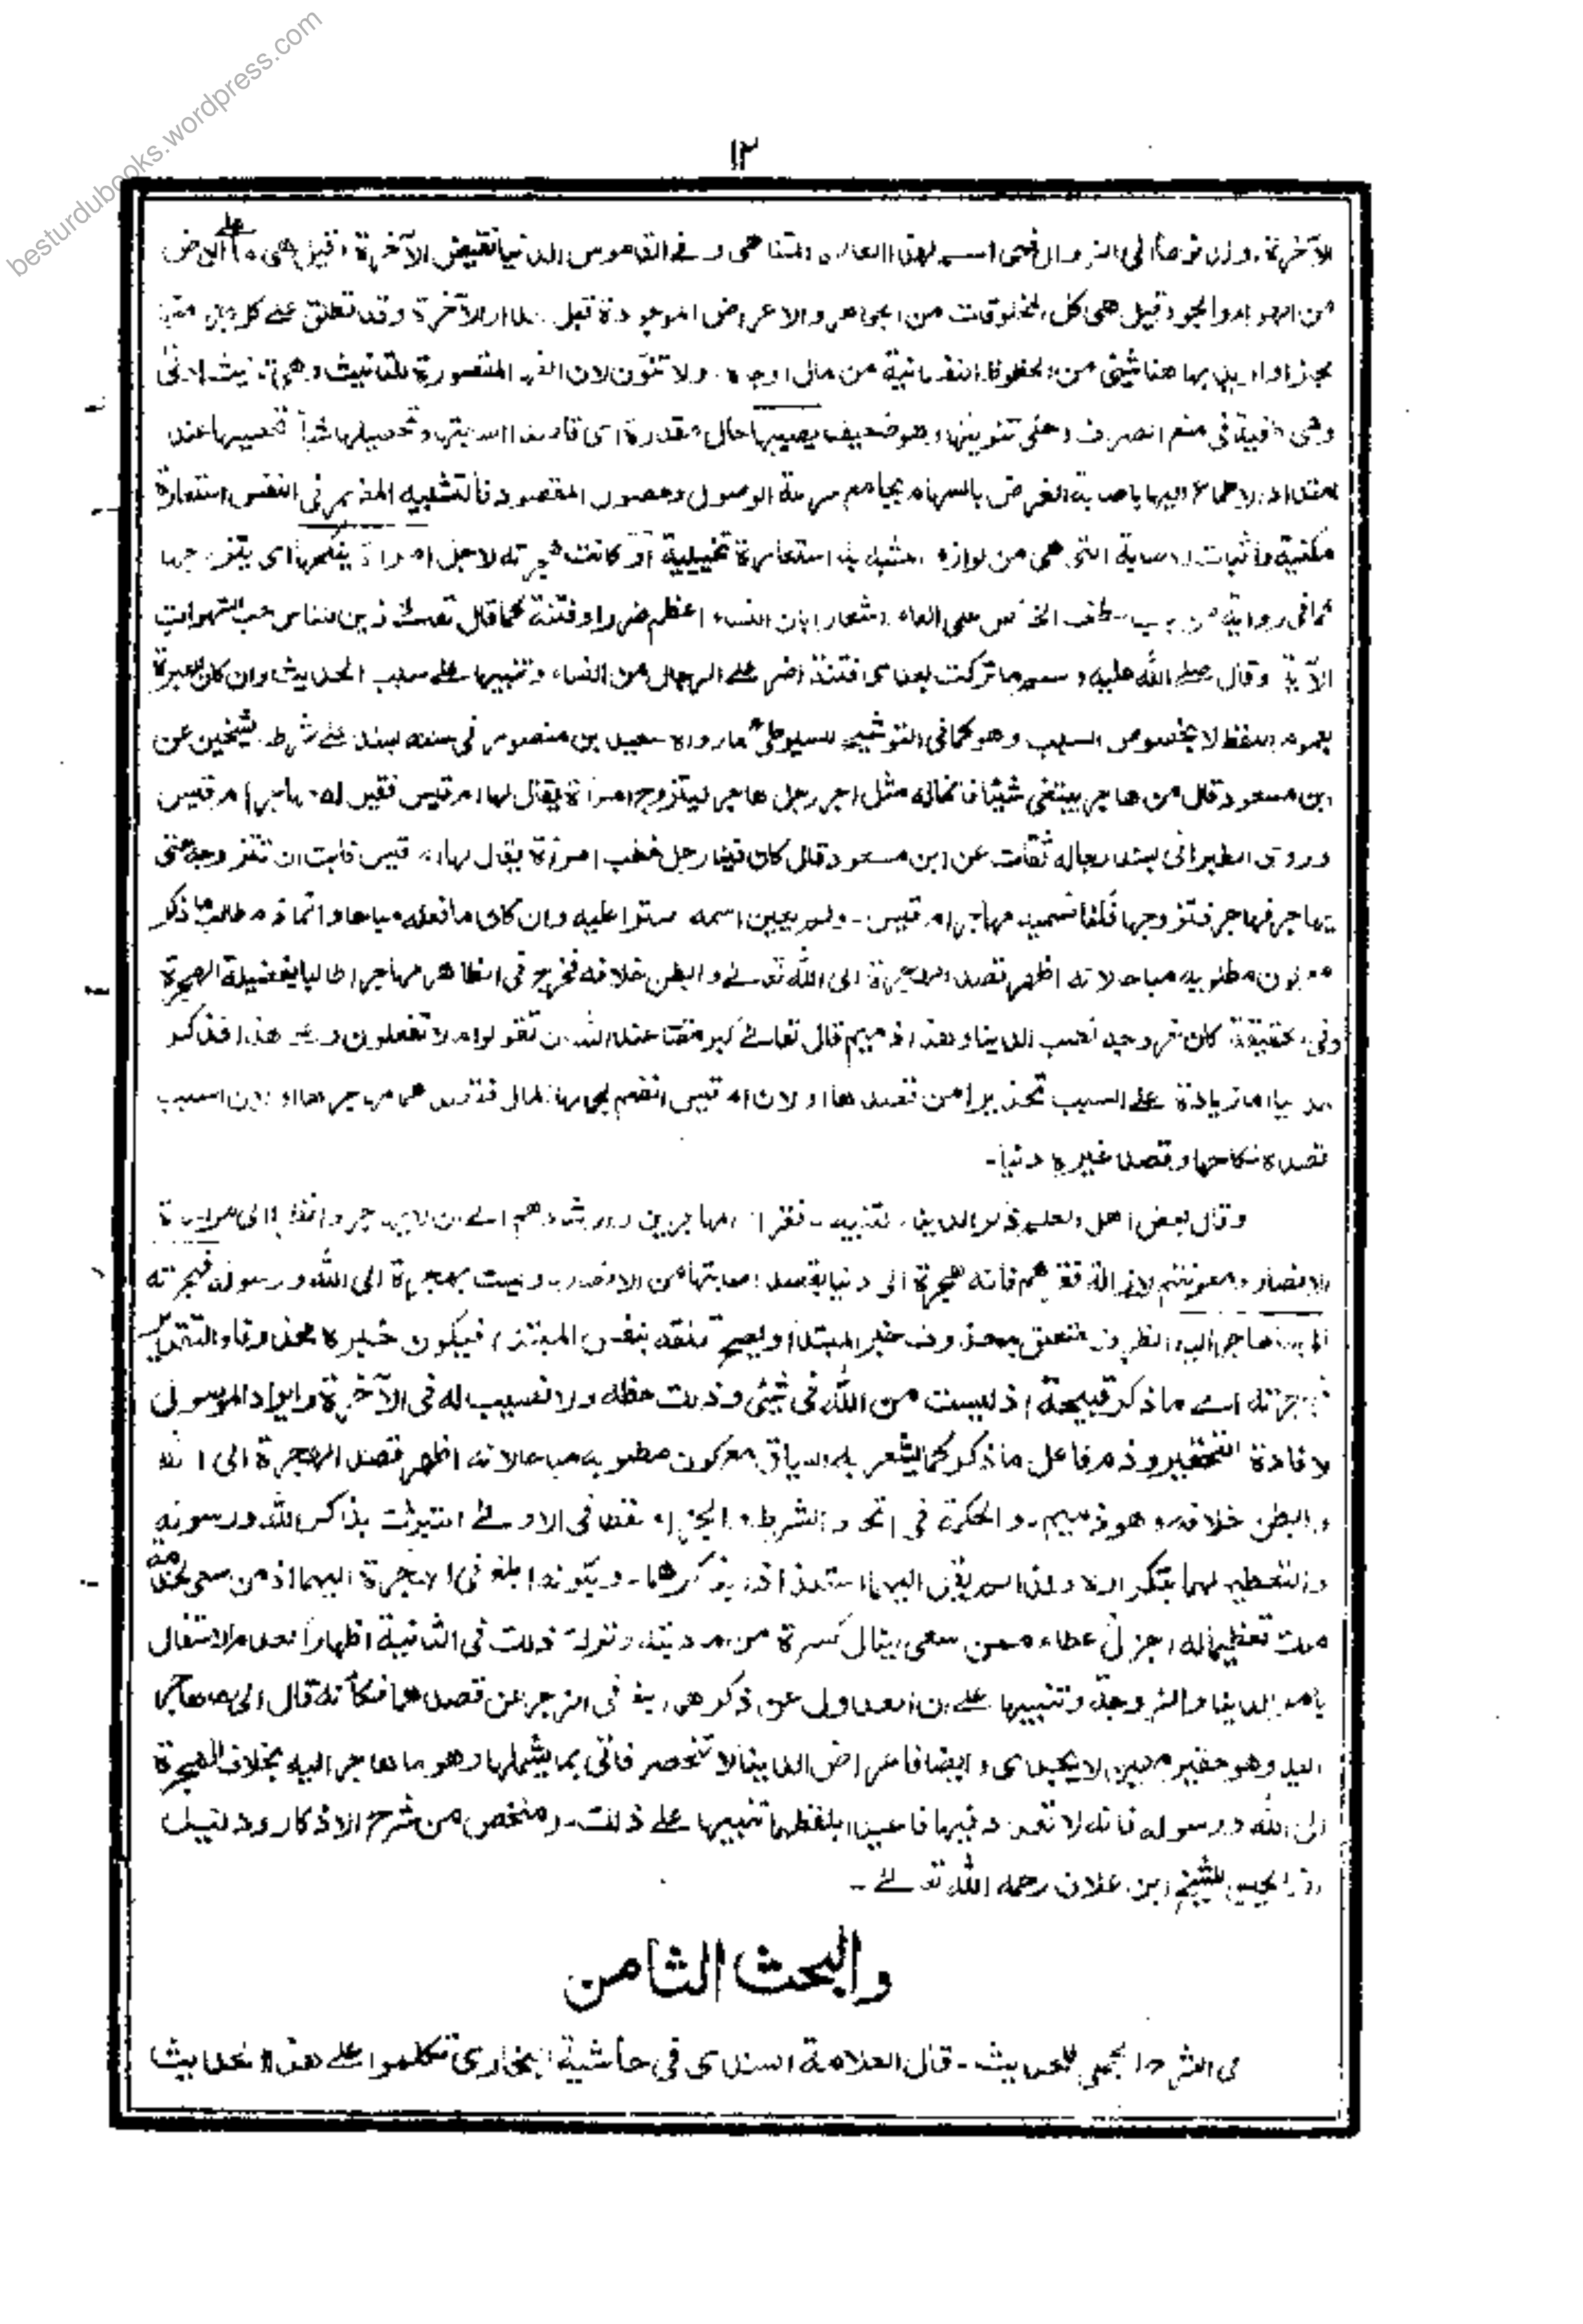 besturdubooks.wordpress.com
١٢
الآخرة، ودنوها الى الزوال فهى اسم لهذا العالم المتناهى وفے القاموس الدنيا نقيض الآخرة وقيل هى ما على الارض
من الهواء والجو وقيل هى كل المخلوقات من الجواهر والاعراض الموجودة قبل الدار الآخرة وقد تطلق على كل جزء منها
مجازا واريد بها هنا شيئى من الحظوظ النفسانية من مال اوجاه. ولا تنون لان الفها المقصورة للتانيث وهى تانيث ادنى
وهى كافية فى منع الصرف وحكى تنوينها وهو ضعيف يصيبها حال مقدرة اى قاصدا اصابتها وتحصيلها شبه تحصيلها عند
امتداد الاطماع اليها باصابة الغرض بالسهام بجامع سرعة الوصول وحصول المقصود فالتشبيه المضمر فى النفس استعارة
مكنية واثبات الاصابة التى هى من لوازم المشبه به استعارة تخييلية او كانت هجرته لاجل امرأة ينكحها اى يتزوجها
كما فى رواية من باب عطف الخاص على العام اشعارا بان النساء اعظم ضررا وفتنة كما قال تعالى زين للناس حب الشهوات
الآية وقال صلے اللّٰه عليه وسلم ما تركت بعدى فتنة اضر علے الرجال من النساء وتنبيها علے سبب الحديث وان كان العبرة
بعموم اللفظ لا بخصوص السبب وهو كما فى التوشيح للسيوطى ما رواه سعيد بن منصور فى سننه بسند على شرط الشيخين عن
ابن مسعود قال من هاجر يبتغى شيئا فانما له مثل اجر رجل هاجر ليتزوج امرأة يقال لها ام قيس فقيل له مهاجر ام قيس
وروى الطبرانى بسند رجاله ثقات عن ابن مسعود قال كان فينا رجل خطب امرأة يقال لها ام قيس فابت ان تتزوجه حتى
يهاجر فهاجر فتزوجها فكنا نسميه مهاجر ام قيس - ولم يعين اسمه سترا عليه وان كان ما فعله مباحا وانما ذم طالب ما ذكر
مع كون مطلوبه مباحا لانه اظهر قصد الهجرة الى اللّٰه تعالے وابطن خلافه فخرج فى الظاهر مهاجرا طالبا لفضيلة الهجرة
وفى الحقيقة كان خروجه لطلب الدنيا وهذا ذميم قال تعالے كبر مقتا عند اللّٰه ان تقولوا ما لا تفعلون وعلى هذا فذكر
الدنيا اما زيادة علے السبب تحذيرا من قصدها او لان ام قيس انضم لجمالها المال فقصدهما مهاجرها او لان السبب
قصده نكاحها وقصد غيره دنيا -
وقال بعض اهل العلم
الانصار ومعونتهم لازالة فقرهم فانه هجرة الى دنيا بقصد اصابتها من الانصار وليست بهجرة الى اللّٰه ورسوله فهجرته
الى ما هاجر اليه، الظرف متعلق بمحذوف خبر المبتدأ ويصح تعلقه بنفس المبتدأ فيكون خبره محذوفا والتقدير
فهجرته الى ما ذكر قبيحة اذ ليست من اللّٰه فى شيئى وذلك حظه ولا نصيب له فى الآخرة وايراد الموصول
لافادة التحقير وذم فاعل ما ذكر كما يشعر به السياق مع كون مطلوبه مباحا لانه اظهر قصد الهجرة الى اللّٰه
وابطن خلافه وهو ذميم. والحكمة فى اتحاد الشرط والجزاء لفظا فى الاولے التبرك بذكر اللّٰه ورسوله
والتعظيم لهما بتكراره ولذا لم يقل اليهما استلذاذا بذكرهما - وبكونه ابلغ فى الهجرة اليهما اذ من سعى لخدمة
ملك تعظيما له اجزل عطاء ممن سعى لينال كسرة من مأدبته وترك ذلك فى الثانية اظهارا لعدم الاحتفال
بامر الدنيا والزوجة وتنبيها علے ان العدول عن ذكرهما ابلغ فى الزجر عن قصدهما فكأنه قال الى ما هاجر
اليه وهو حقير مهين لا يجدى وايضا فاعراض الدنيا لا تنحصر فاتى بما يشملها وهو ما هاجر اليه بخلاف الهجرة
الى اللّٰه ورسوله فانه لا تعدد فيها فاعيدا بلفظهما تنبيها علے ذلك - ملخص من شرح الاذكار ودليل
الفالحين للشيخ ابن علان رحمه اللّٰه تعالے -
والبحث الثامن
فى الشرح الجملى للحديث - قال العلامة السندى فى حاشية البخارى تكلموا علے هذا الحديث